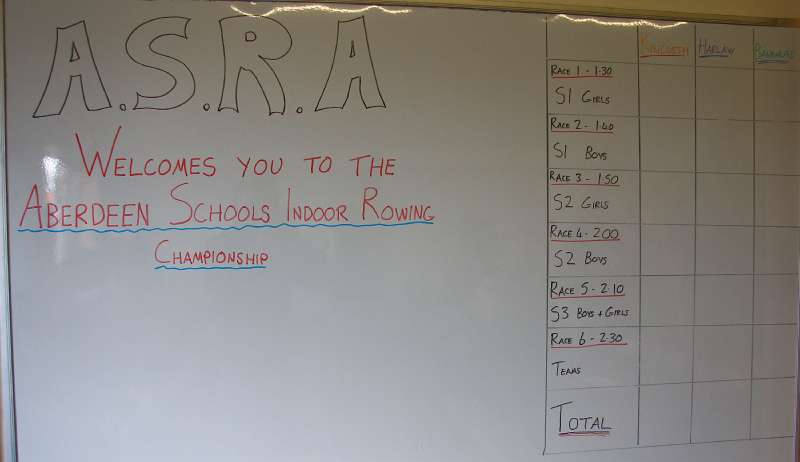 A.S.R.A
WELCOMES YOU TO THE
ABERDEEN SCHOOLS INDOOR ROWING
CHAMPIONSHIP
KINCORTH HARLAW
RACE 1 - 1.30
S1 GIRLS
RACE 2 - 1.40
S1 BOYS
RACE 3 - 1.50
S2 GIRLS
RACE 4 - 2.00
S2 BOYS
RACE 5 - 2.10
S3 BOYS + GIRLS
RACE 6 - 2.30
TEAMS
TOTAL